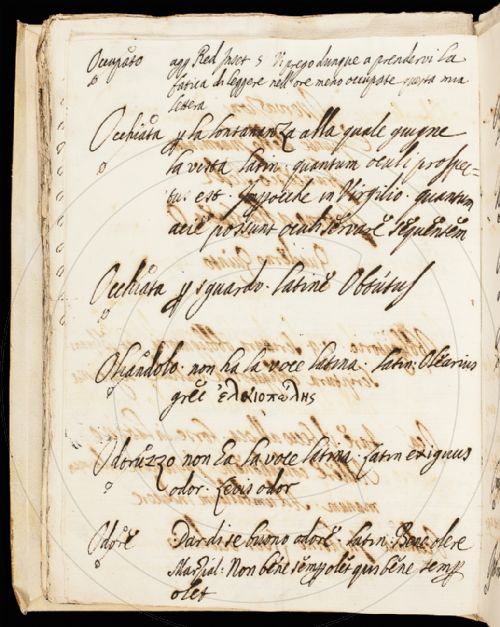 Occupato agg. Red. Inset 5 Vi prego dunque a prendervi la
fatica di leggere nell'ore meno occupate questa mia
lettera
Occhiata p la lontananza alla quale giugne
la vista latin. quantum oculi prospec=
tus est. in Virgilio. quantum
acie possunt oculi servare sequentem
Occhiata p sguardo. latine Obtutus
Oliandolo. non ha la voce latina. latin: Olearius
grec ἐλαιοπώλης
Odoruzzo non ha la voce latina. latin exiguus
odor. levis odor
Odore Dar di se buono odore. latin. Bene olere
Marzial: Non bene semp olet qui bene semp
olet